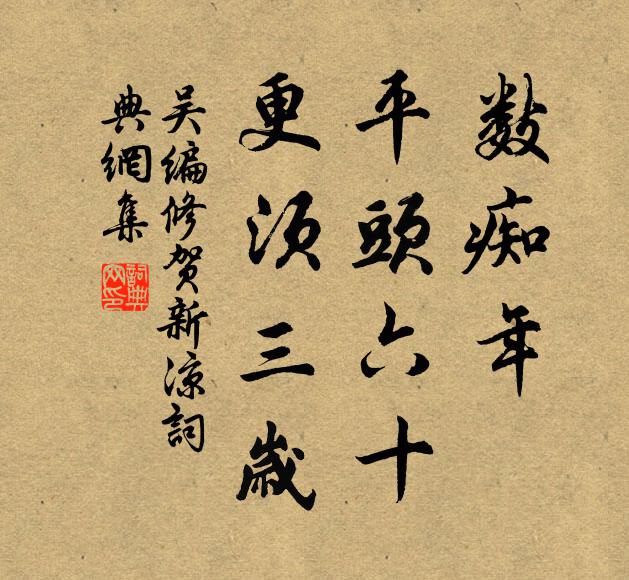 數痴年
平頭六十
更須三歲
吴編修賀新涼詞
典網集
詞典網印